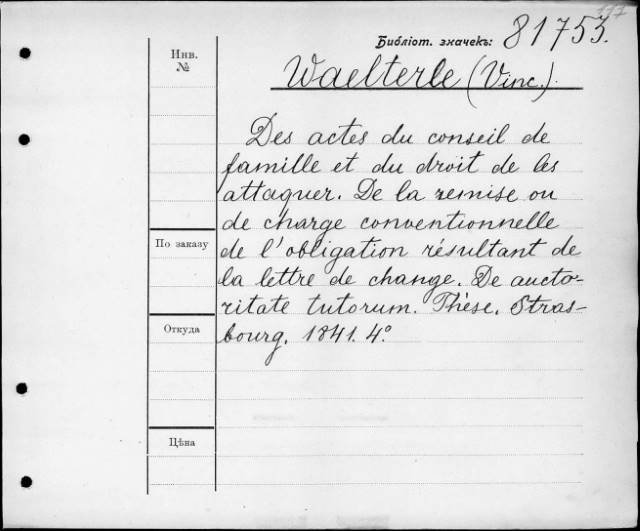 117
Библіот. значекъ: 81753.
Инв.
№
Waelterle (Vinc.).
Des actes du conseil de
famille et du droit de les
attaquer. De la remise ou
de charge conventionnelle
По заказу
de l'obligation résultant de
la lettre de change. De aucto-
ritate tutorum. Thèse. Stras-
Откуда
bourg. 1841. 4°.
Цѣна